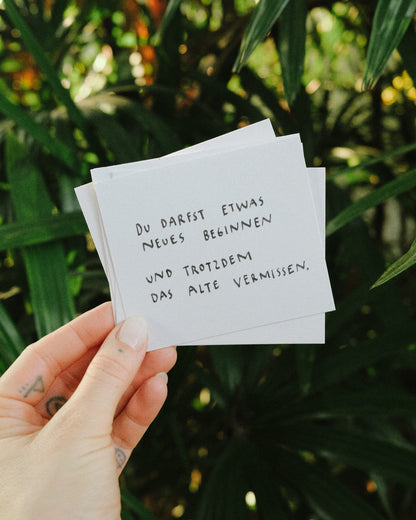 DU DARFST ETWAS
NEUES BEGINNEN
UND TROTZDEM
DAS ALTE VERMISSEN.